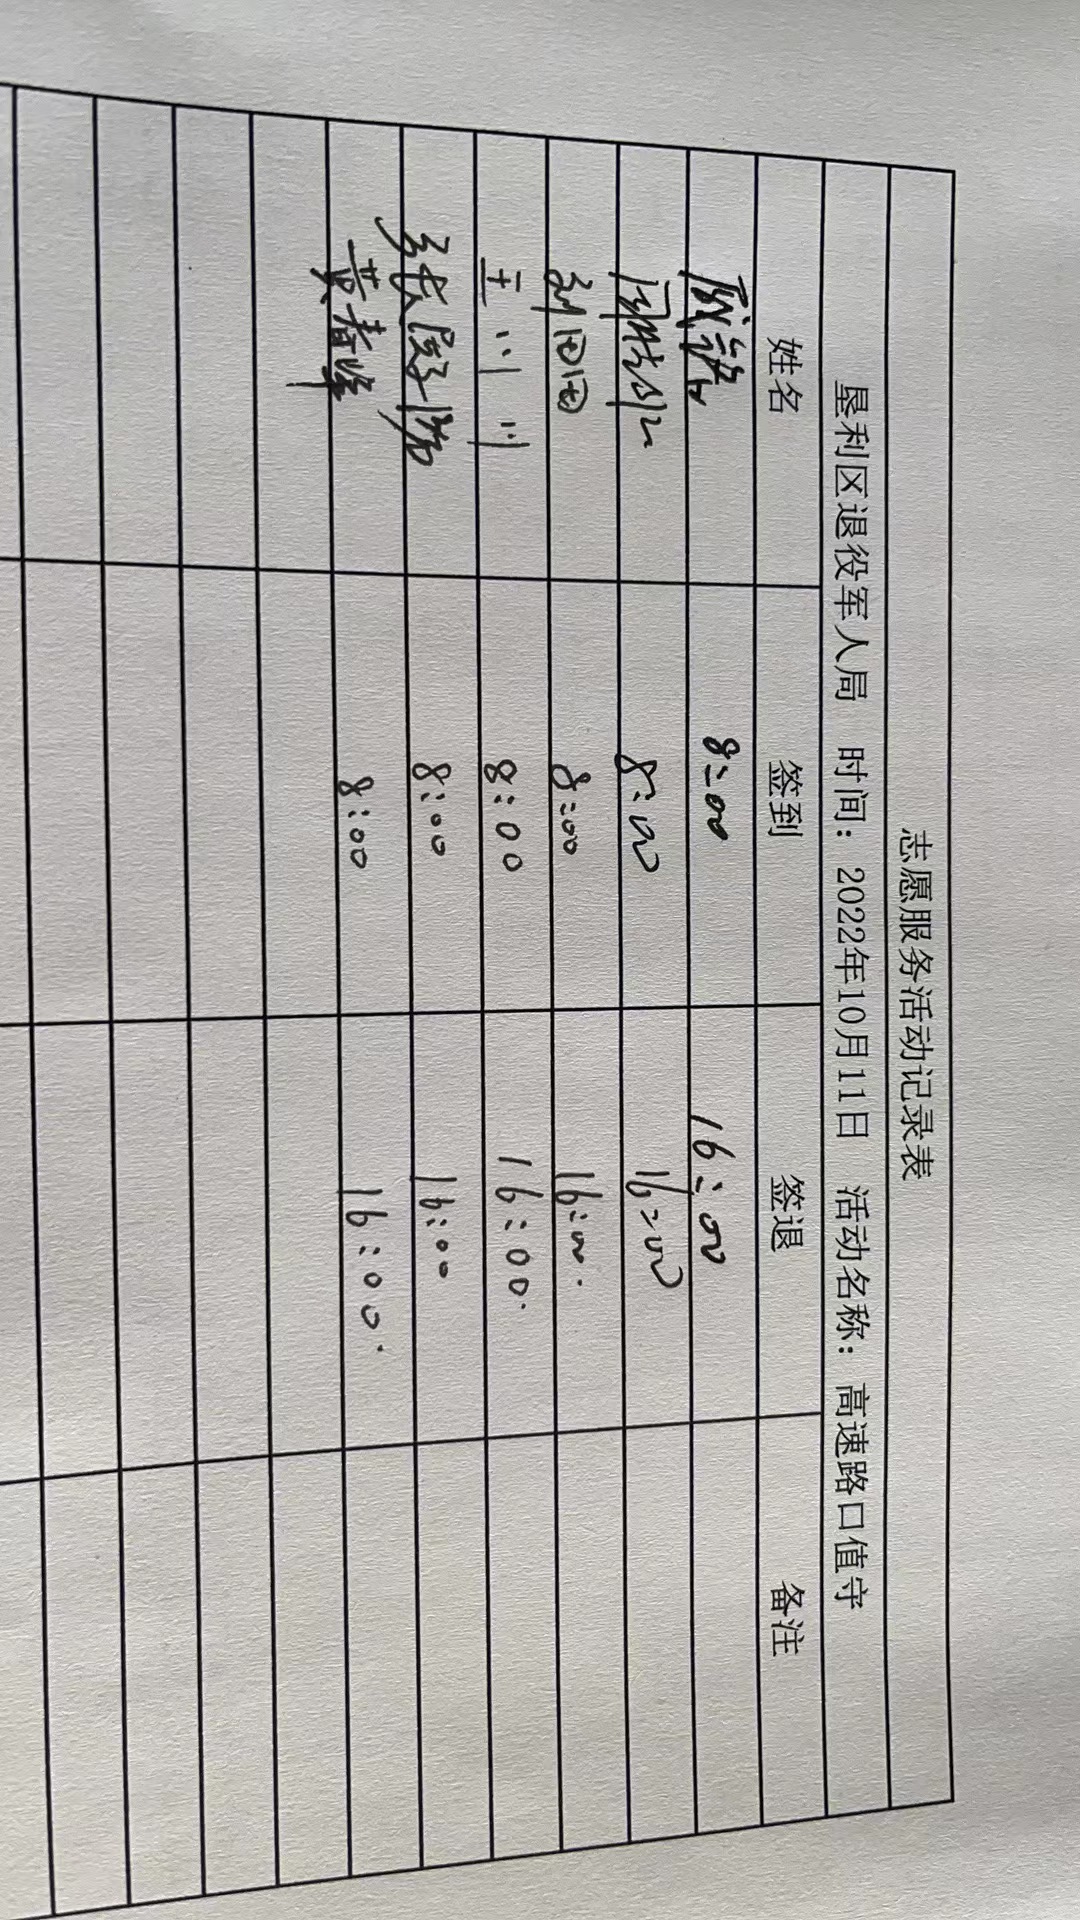 志愿服务活动记录表
垦利区退役军人局 时间：2022年10月11日 活动名称：高速路口值守
姓名 签到 签退 备注
8:00 16:00
8:00 16:00
8:00 16:00.
王 8:00 16:00.
8:00 16:00
黄春峰 8:00 16:00.